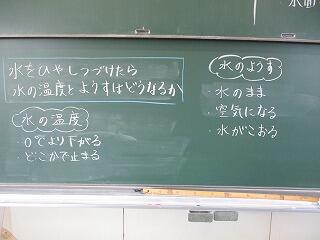 水をひやしつづけたら
水の温度とようすはどうなるか
水の温度
・0℃より下がる
・どこかで止まる
水のようす
・水のまま
・空気になる
・水がこおる